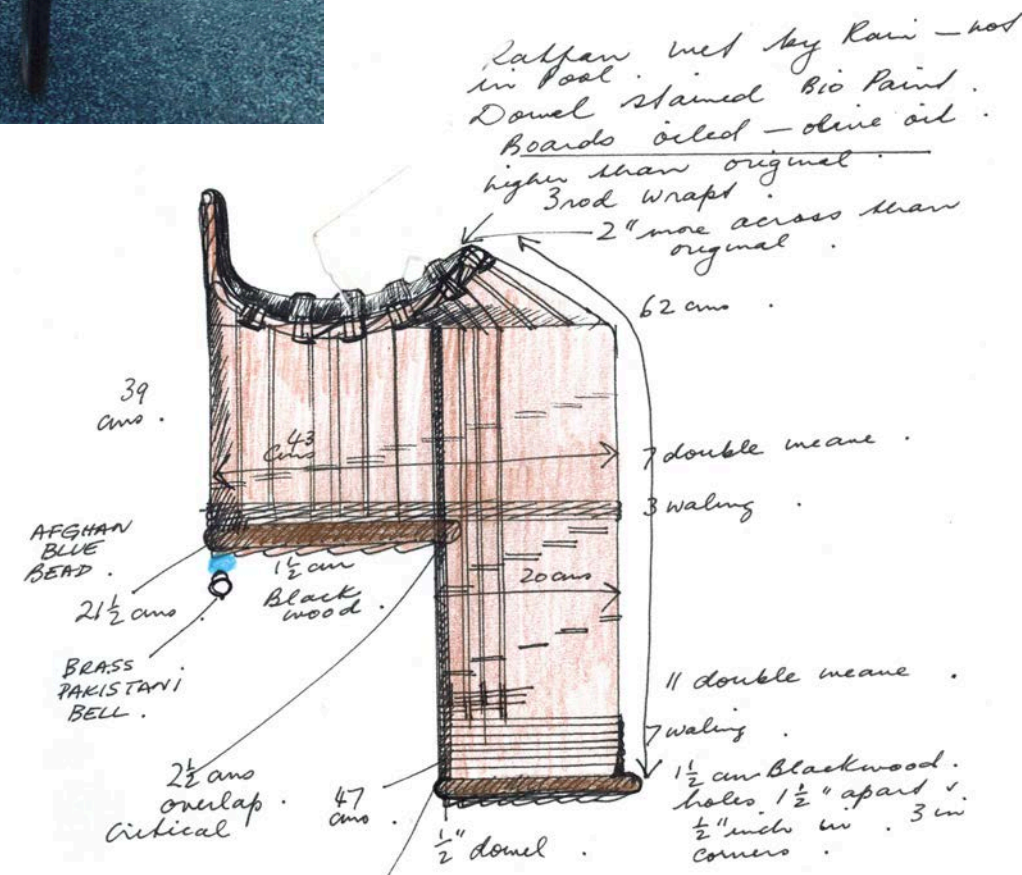 Rattan wet by Rain — not
in Pool.
Dowel stained Bio Paint.
Boards oiled — olive oil.
higher than original.
3 rod wraps.
2" more across than
original.
62 cms.
39
cms.
43
cms
7 double weave.
3 waling.
AFGHAN
BLUE
BEAD.
1½ cm
Black
wood.
20 cms
21½ cms.
BRASS
PAKISTANI
BELL.
11 double weave.
7 waling.
2½ cms
overlap.
Critical
47
cms.
½" dowel.
1½ cm Blackwood.
holes 1½" apart
½" inch in. 3 in
corners.